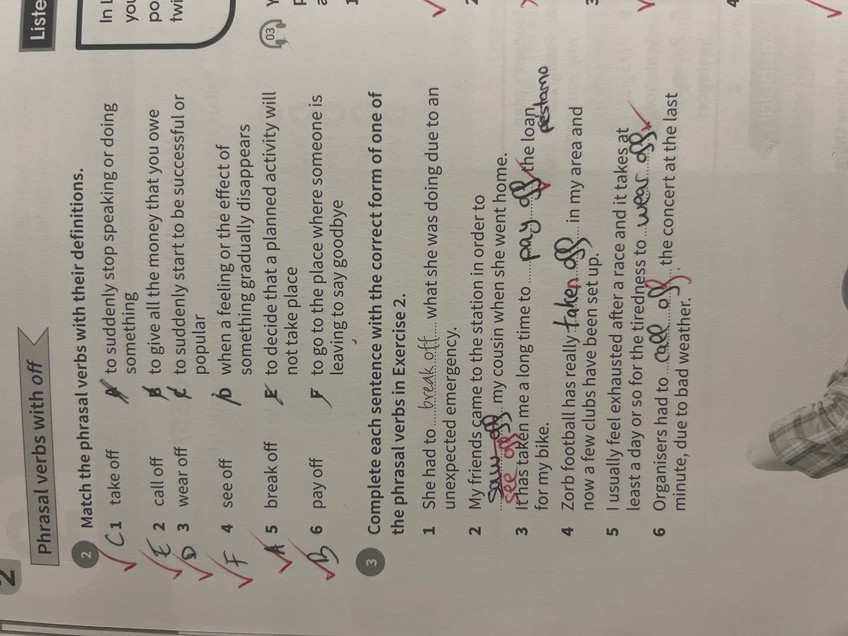 2
Phrasal verbs with off
2 Match the phrasal verbs with their definitions.
C 1 take off
E 2 call off
D 3 wear off
F 4 see off
A 5 break off
B 6 pay off
A to suddenly stop speaking or doing
something
B to give all the money that you owe
C to suddenly start to be successful or
popular
D when a feeling or the effect of
something gradually disappears
E to decide that a planned activity will
not take place
F to go to the place where someone is
leaving to say goodbye
3 Complete each sentence with the correct form of one of
the phrasal verbs in Exercise 2.
1 She had to break off what she was doing due to an
unexpected emergency.
2 My friends came to the station in order to
saw off my cousin when she went home.
see off
3 It has taken me a long time to pay off the loan
pestamo
for my bike.
4 Zorb football has really taken off in my area and
now a few clubs have been set up.
5 I usually feel exhausted after a race and it takes at
least a day or so for the tiredness to wear off.
6 Organisers had to call off the concert at the last
minute, due to bad weather.
Liste
In
you
po
twi
03
4